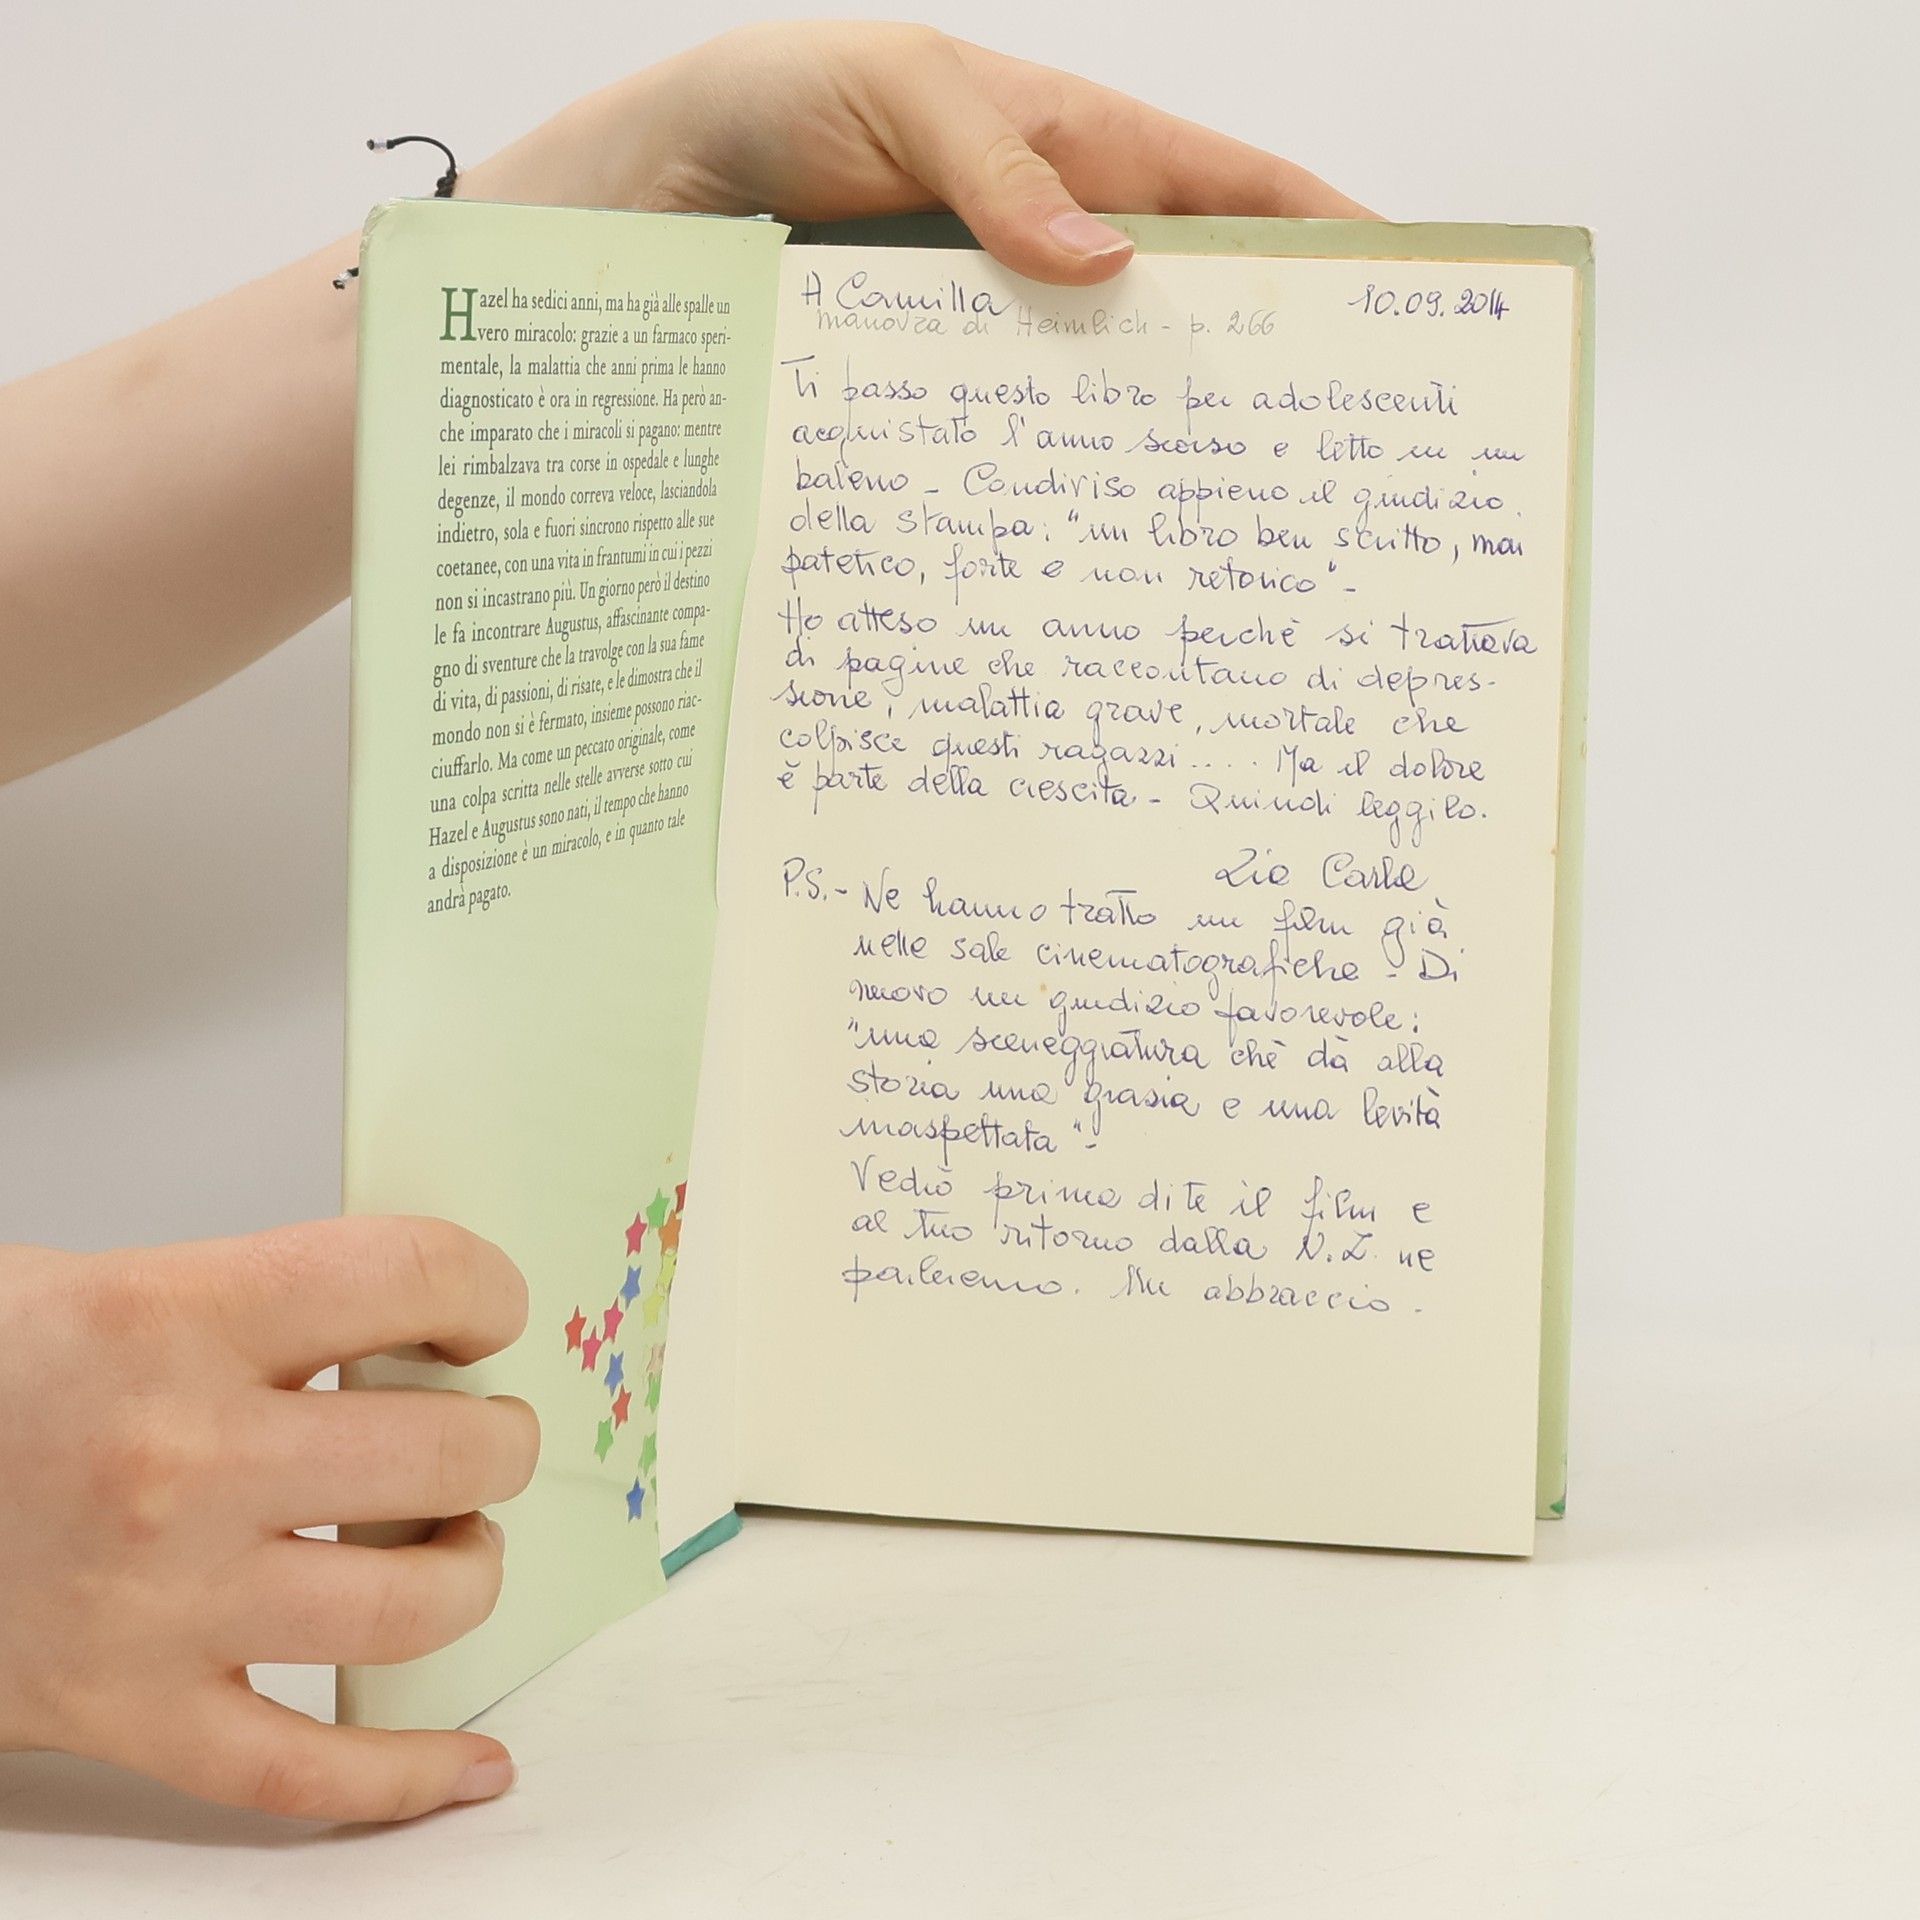 Hazel ha sedici anni, ma ha già alle spalle un
vero miracolo: grazie a un farmaco speri-
mentale, la malattia che anni prima le hanno
diagnosticato è ora in regressione. Ha però an-
che imparato che i miracoli si pagano: mentre
lei rimbalzava tra corse in ospedale e lunghe
degenze, il mondo correva veloce, lasciandola
indietro, sola e fuori sincrono rispetto alle sue
coetanee, con una vita in frantumi in cui i pezzi
non si incastrano più. Un giorno però il destino
le fa incontrare Augustus, affascinante compa-
gno di sventure che la travolge con la sua fame
di vita, di passioni, di risate, e le dimostra che il
mondo non si è fermato, insieme possono riac-
ciuffarlo. Ma come un peccato originale, come
una colpa scritta nelle stelle avverse sotto cui
Hazel e Augustus sono nati, il tempo che hanno
a disposizione è un miracolo, e in quanto tale
andrà pagato.
A Camilla 10.09.2014
manovra di Heimlich - p. 266
Ti passo questo libro per adolescenti
acquistato l'anno scorso e letto in un
baleno - Condiviso appieno il giudizio
della stampa: "un libro ben scritto, mai
patetico, forte e non retorico" -
Ho atteso un anno perchè si trattava
di pagine che raccontano di depres-
sione, malattia grave, mortale che
colpisce questi ragazzi .... Ma il dolore
è parte della crescita - Quindi leggilo.
Zia Carla
P.S. - Ne hanno tratto un film già
nelle sale cinematografiche - Di
nuovo un giudizio favorevole:
"una sceneggiatura chè dà alla
storia una grazia e una levità
inaspettata" -
Vedrò prima di te il film e
al tuo ritorno dalla N.Z. ne
parleremo. Un abbraccio -